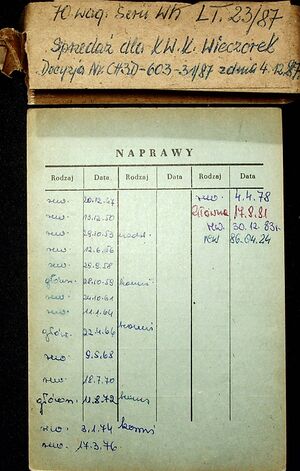 70 wag. Serii Wh LT. 23/87
Sprzedaż dla KW.K. Wieczorek
Decyzja Nr CH3D-603-31/87 z dnia 4.12.87
NAPRAWY
Rodzaj Data Rodzaj Data Rodzaj Data
rew. 20.12.47 rew. 4.4.78
rew. 13.12.50 Główna 17.8.81
rew. 29.10.53 rew. 30.12.83r.
rew. 12.6.56 rew 86.04.24
rew. 29.8.58
główn. 28.10.59
rew. 24.10.61
rew. 11.1.64
główn. 22.4.66
rew. 9.5.68
rew. 18.7.70
główn. 11.8.72
rew. 3.1.74
rew. 17.3.76.